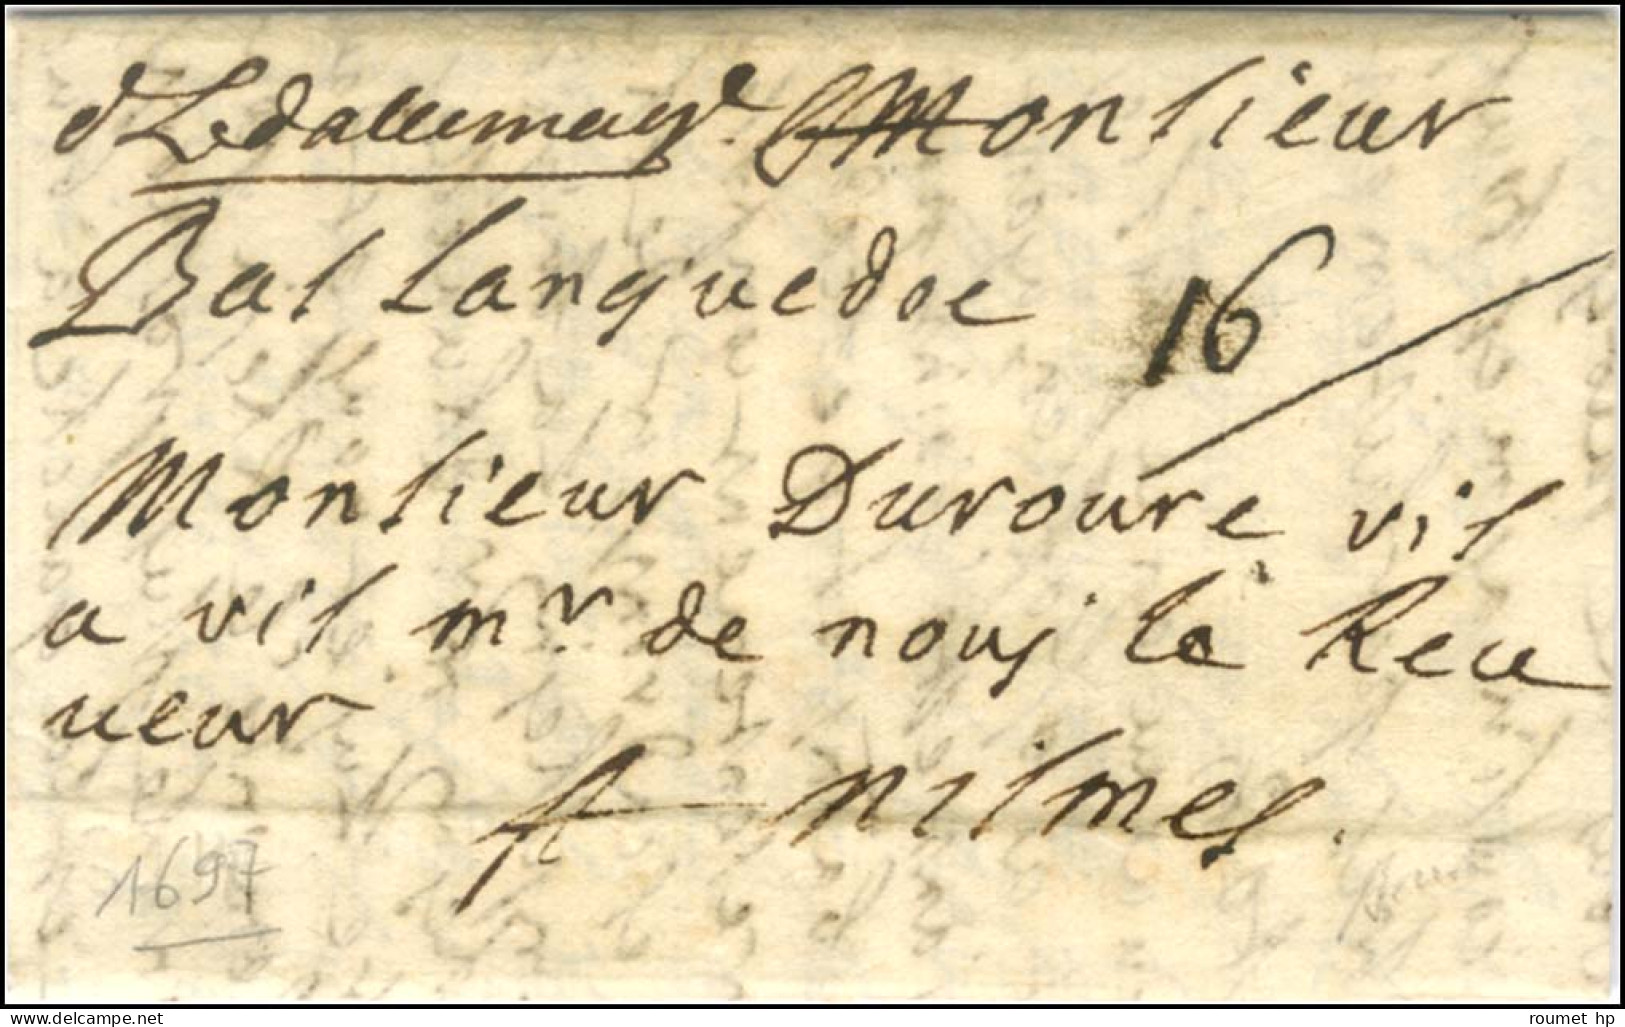 d L dallemagne Monsieur
Bas Languedoc 16
Monsieur Duroure vis
a vis mr. de nouy le Rece
ueur
A nismes.
1697
delcampe.net
roumet hp